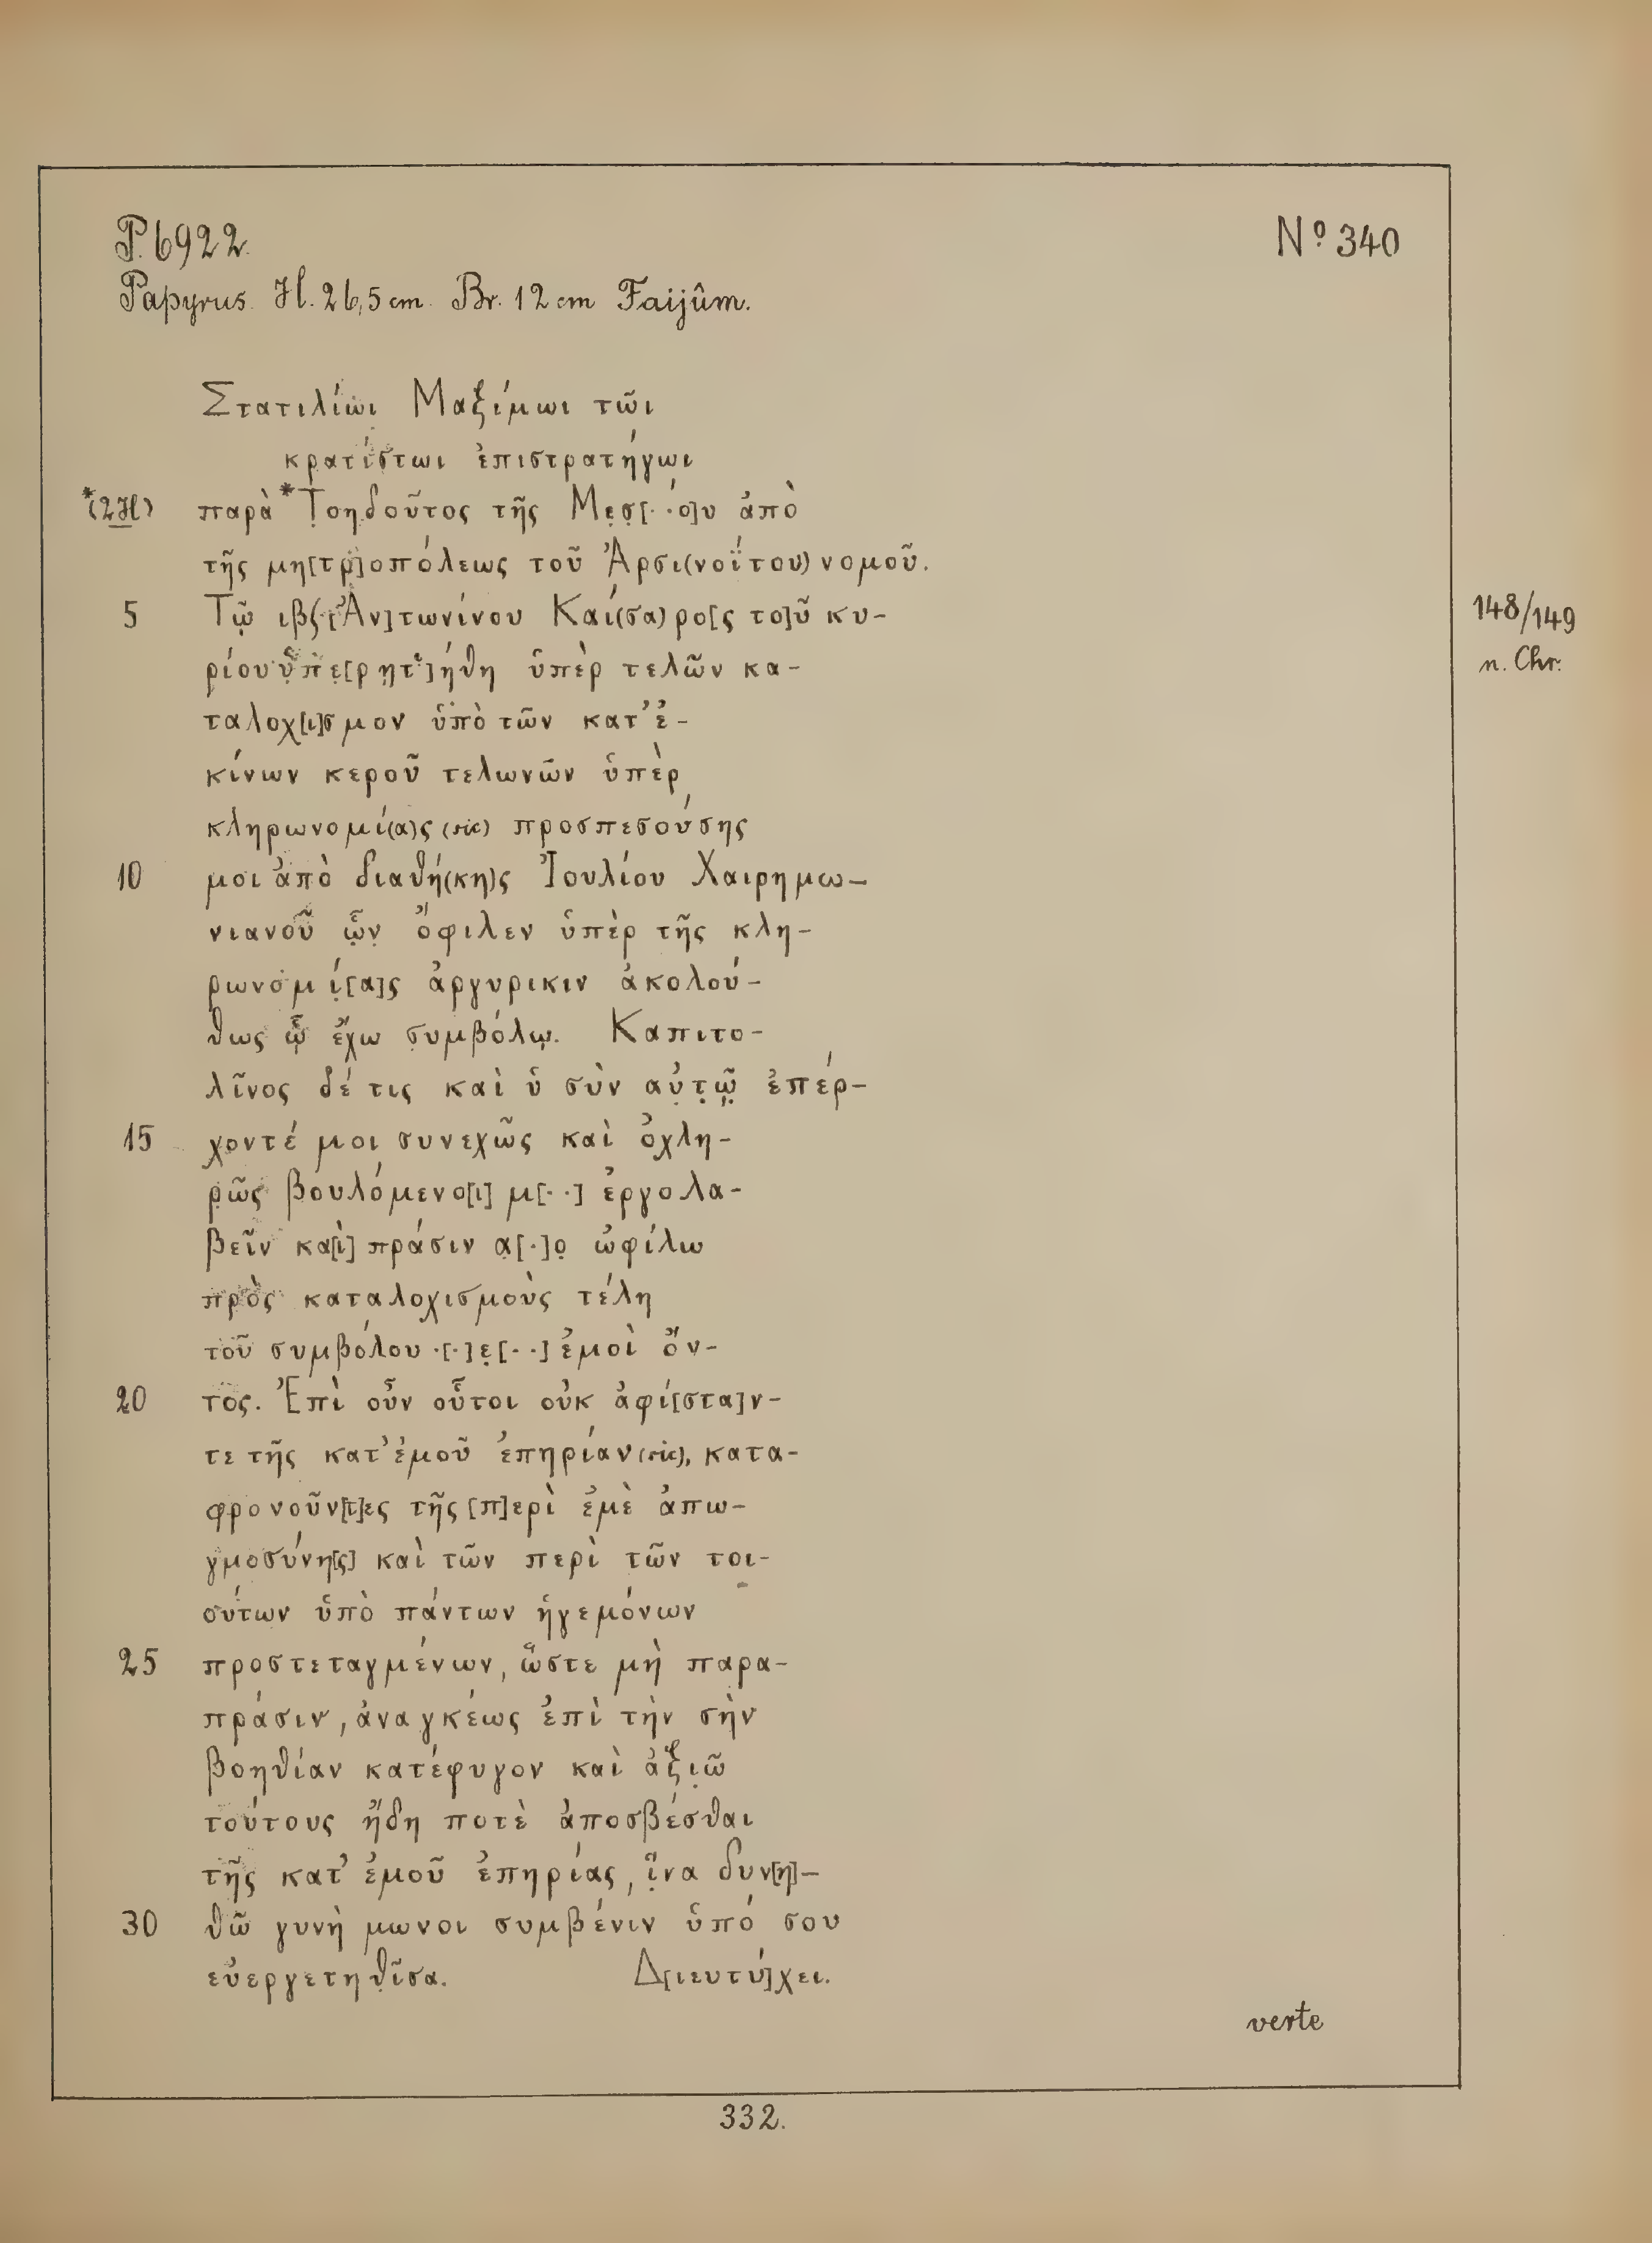 P. 6922. Nº 340
Papyrus. H. 26,5 cm. Br. 12 cm Faijûm.
Στατιλίωι Μαξίμωι τῶι
κρατίστωι ἐπιστρατήγωι
*(2H) παρὰ *Τ̣οηδοῦτος τῆς Με̣σ̣[··ό]υ ἀπὸ
τῆς μη[τρ]οπόλεως τοῦ Ἀρσι(νοΐτου) νομοῦ.
5 Τῷ ιβϛ [Ἀν]τωνίνου Καί(σα)ρο[ς το]ῦ κυ-
148/149
n. Chr.
ρίου ὑ̣πε̣[ρῃτ]ήθη ὑπὲρ τελῶν κα-
ταλοχ[ι]σμον ὑπὸ τῶν κατ' ἐ-
κίνων κεροῦ τελωνῶν ὑπὲρ
κληρωνομί(α)ς (sic) προσπεσούσης
10 μοι ἀπὸ διαθή(κη)ς Ἰουλίου Χαιρημω-
νιανοῦ ὧ̣ν̣ ὄφιλεν ὑπὲρ τῆς κλη-
ρωνομί̣[α]ς ἀργυρικιν ἀκολού-
θως ᾧ ἔχω συμβόλῳ. Καπιτο-
λῖνος δέ τις καὶ ὑ σὺν αὐτ̣ῷ̣ ἐπέρ-
15 χοντέ μοι συνεχῶς καὶ ὀχλη-
ρῶς βουλόμενο[ι] μ[··] ἐργολα-
βεῖν κα[ὶ] πράσιν α̣[·]ο̣ ὠφίλω
πρὸς καταλοχισμοὺς τέλη
τοῦ συμβόλου ·[·]ε̣[··] ἐμοὶ ὄν-
20 τος. Ἐπὶ οὖν οὗτοι οὐκ ἀφί[στα]ν-
τε τῆς κατ' ἐμοῦ ἐπηρίαν (sic), κατα-
φρονοῦν[τ]ες τῆς [π]ερὶ ἐμὲ ἀπω-
γμοσύνη[ς] καὶ τῶν περὶ τῶν τοι-
ούτων ὑπὸ πάντων ἡγεμόνων
25 προστεταγμένων, ὥστε μὴ παρα-
πράσιν, ἀναγκέως ἐπὶ τὴν σὴν
βοηθίαν κατέφυγον καὶ ἀξι̣ῶ
τούτους ἤδη ποτὲ ἀποσβέσθαι
τῆς κατ' ἐμοῦ ἐπηρίας, ἵ̣να δυν[η]-
30 θῶ γυνὴ μωνοι συμβένιν ὑπό σου
εὐεργετηθ̣ῖσα. Δ[ιευτύ]χει.
verte
332.